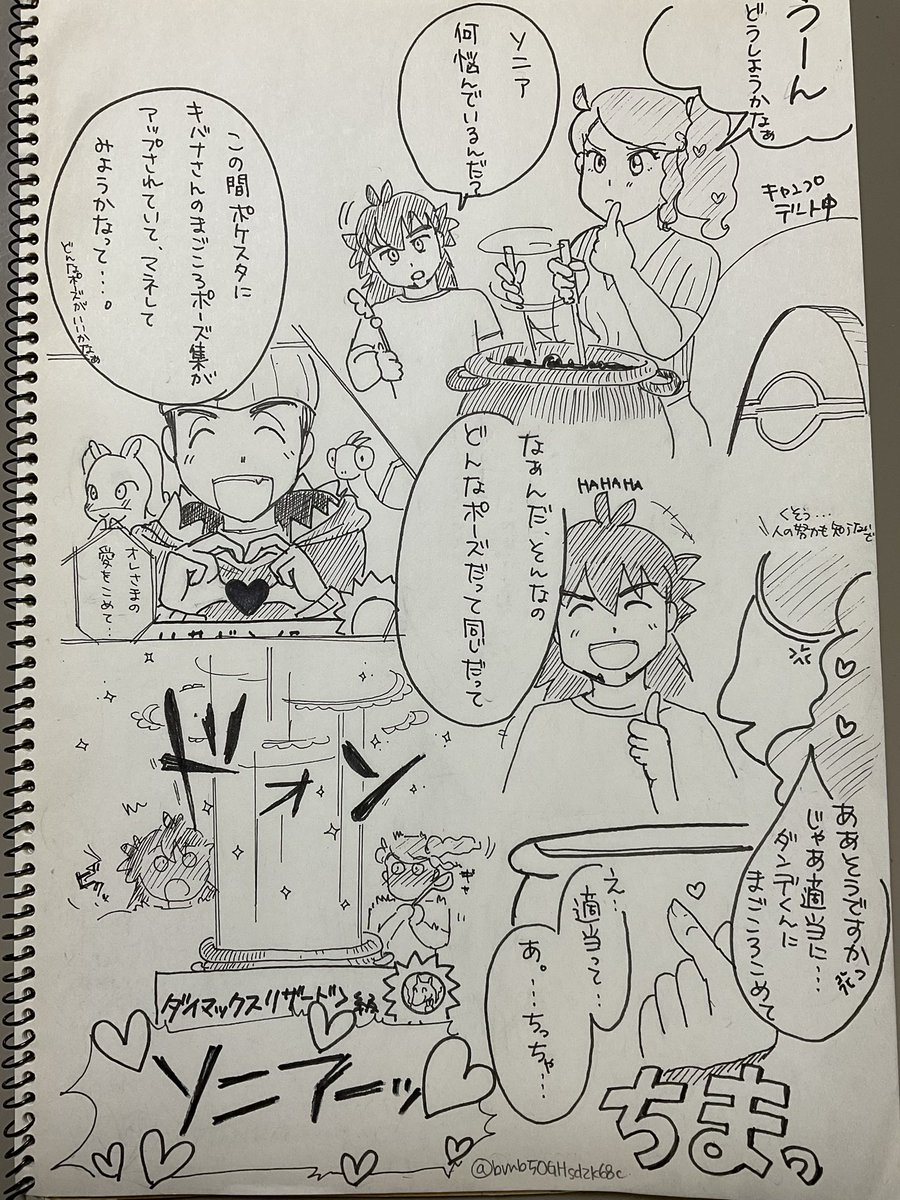 うーん
どうしようかなぁ
キャンプ
デート中
ソニア
何悩んでいるんだ？
この間ポケスタに
キバナさんのまごころポーズ集が
アップされていて、マネして
みようかなって・・・。
どんなポーズがいいかなぁ
オレさまの
愛をこめて・・・
HAHAHA
なぁんだ、そんなの
どんなポーズだって同じだって
くそぅ・・・
人の努力も知らないで
ああそうですかっ
じゃあ適当に・・・
ダンデくんに
まごころこめて
え・・・
適当って・・・
あ。・・・ちっちゃ・・・
ちまっ
ドォン
ダイマックスリザードン級
ソニアーッ
@bvnb50GHsdzk68c